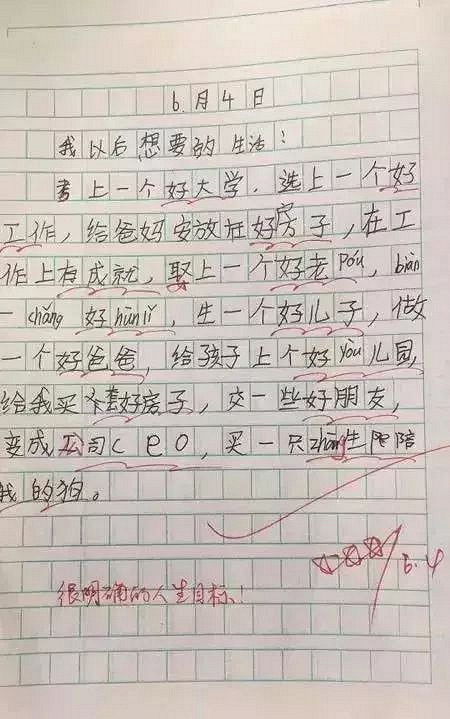 6月4日
我以后想要的生活：
考上一个好大学，选上一个好
工作，给爸妈安放在好房子，在工
作上有成就，娶上一个好老Pó，bàn
一chǎng好hūnlǐ，生一个好儿子，做
一个好爸爸，给孩子上个好yòu儿园，
给我买套好房子，交一些好朋友，
变成公司CeO，买一只zhōng生陪
我的狗。
6.4
很明确的人生目标！